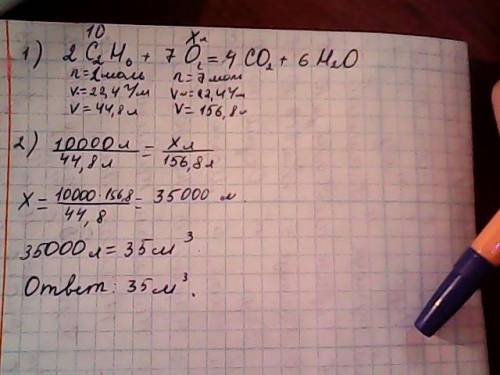 10 Xл
1) 2 C₂H₆ + 7 O₂ = 4 CO₂ + 6 H₂O
n=2моль n=7мол
V=22,4л/м Vм=22,4л/м
V=44,8л V=156,8л
2) 10000л/44,8л = Xл/156,8л
X = 10000·156,8/44,8 = 35000 л.
35000л = 35м³.
Ответ: 35м³.